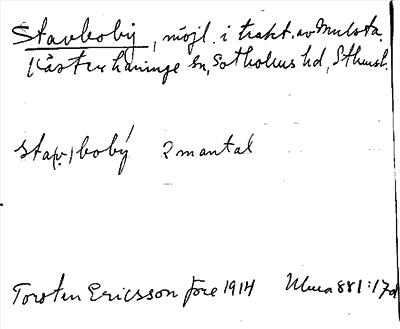 Stavboby, möjl. i trakt. av Mulsta.
Västerhaninge sn, Sotholms hd, Sthmsl.
sta(v)boby 2 mantal
Torsten Ericsson före 1914 Ulma 881:17d